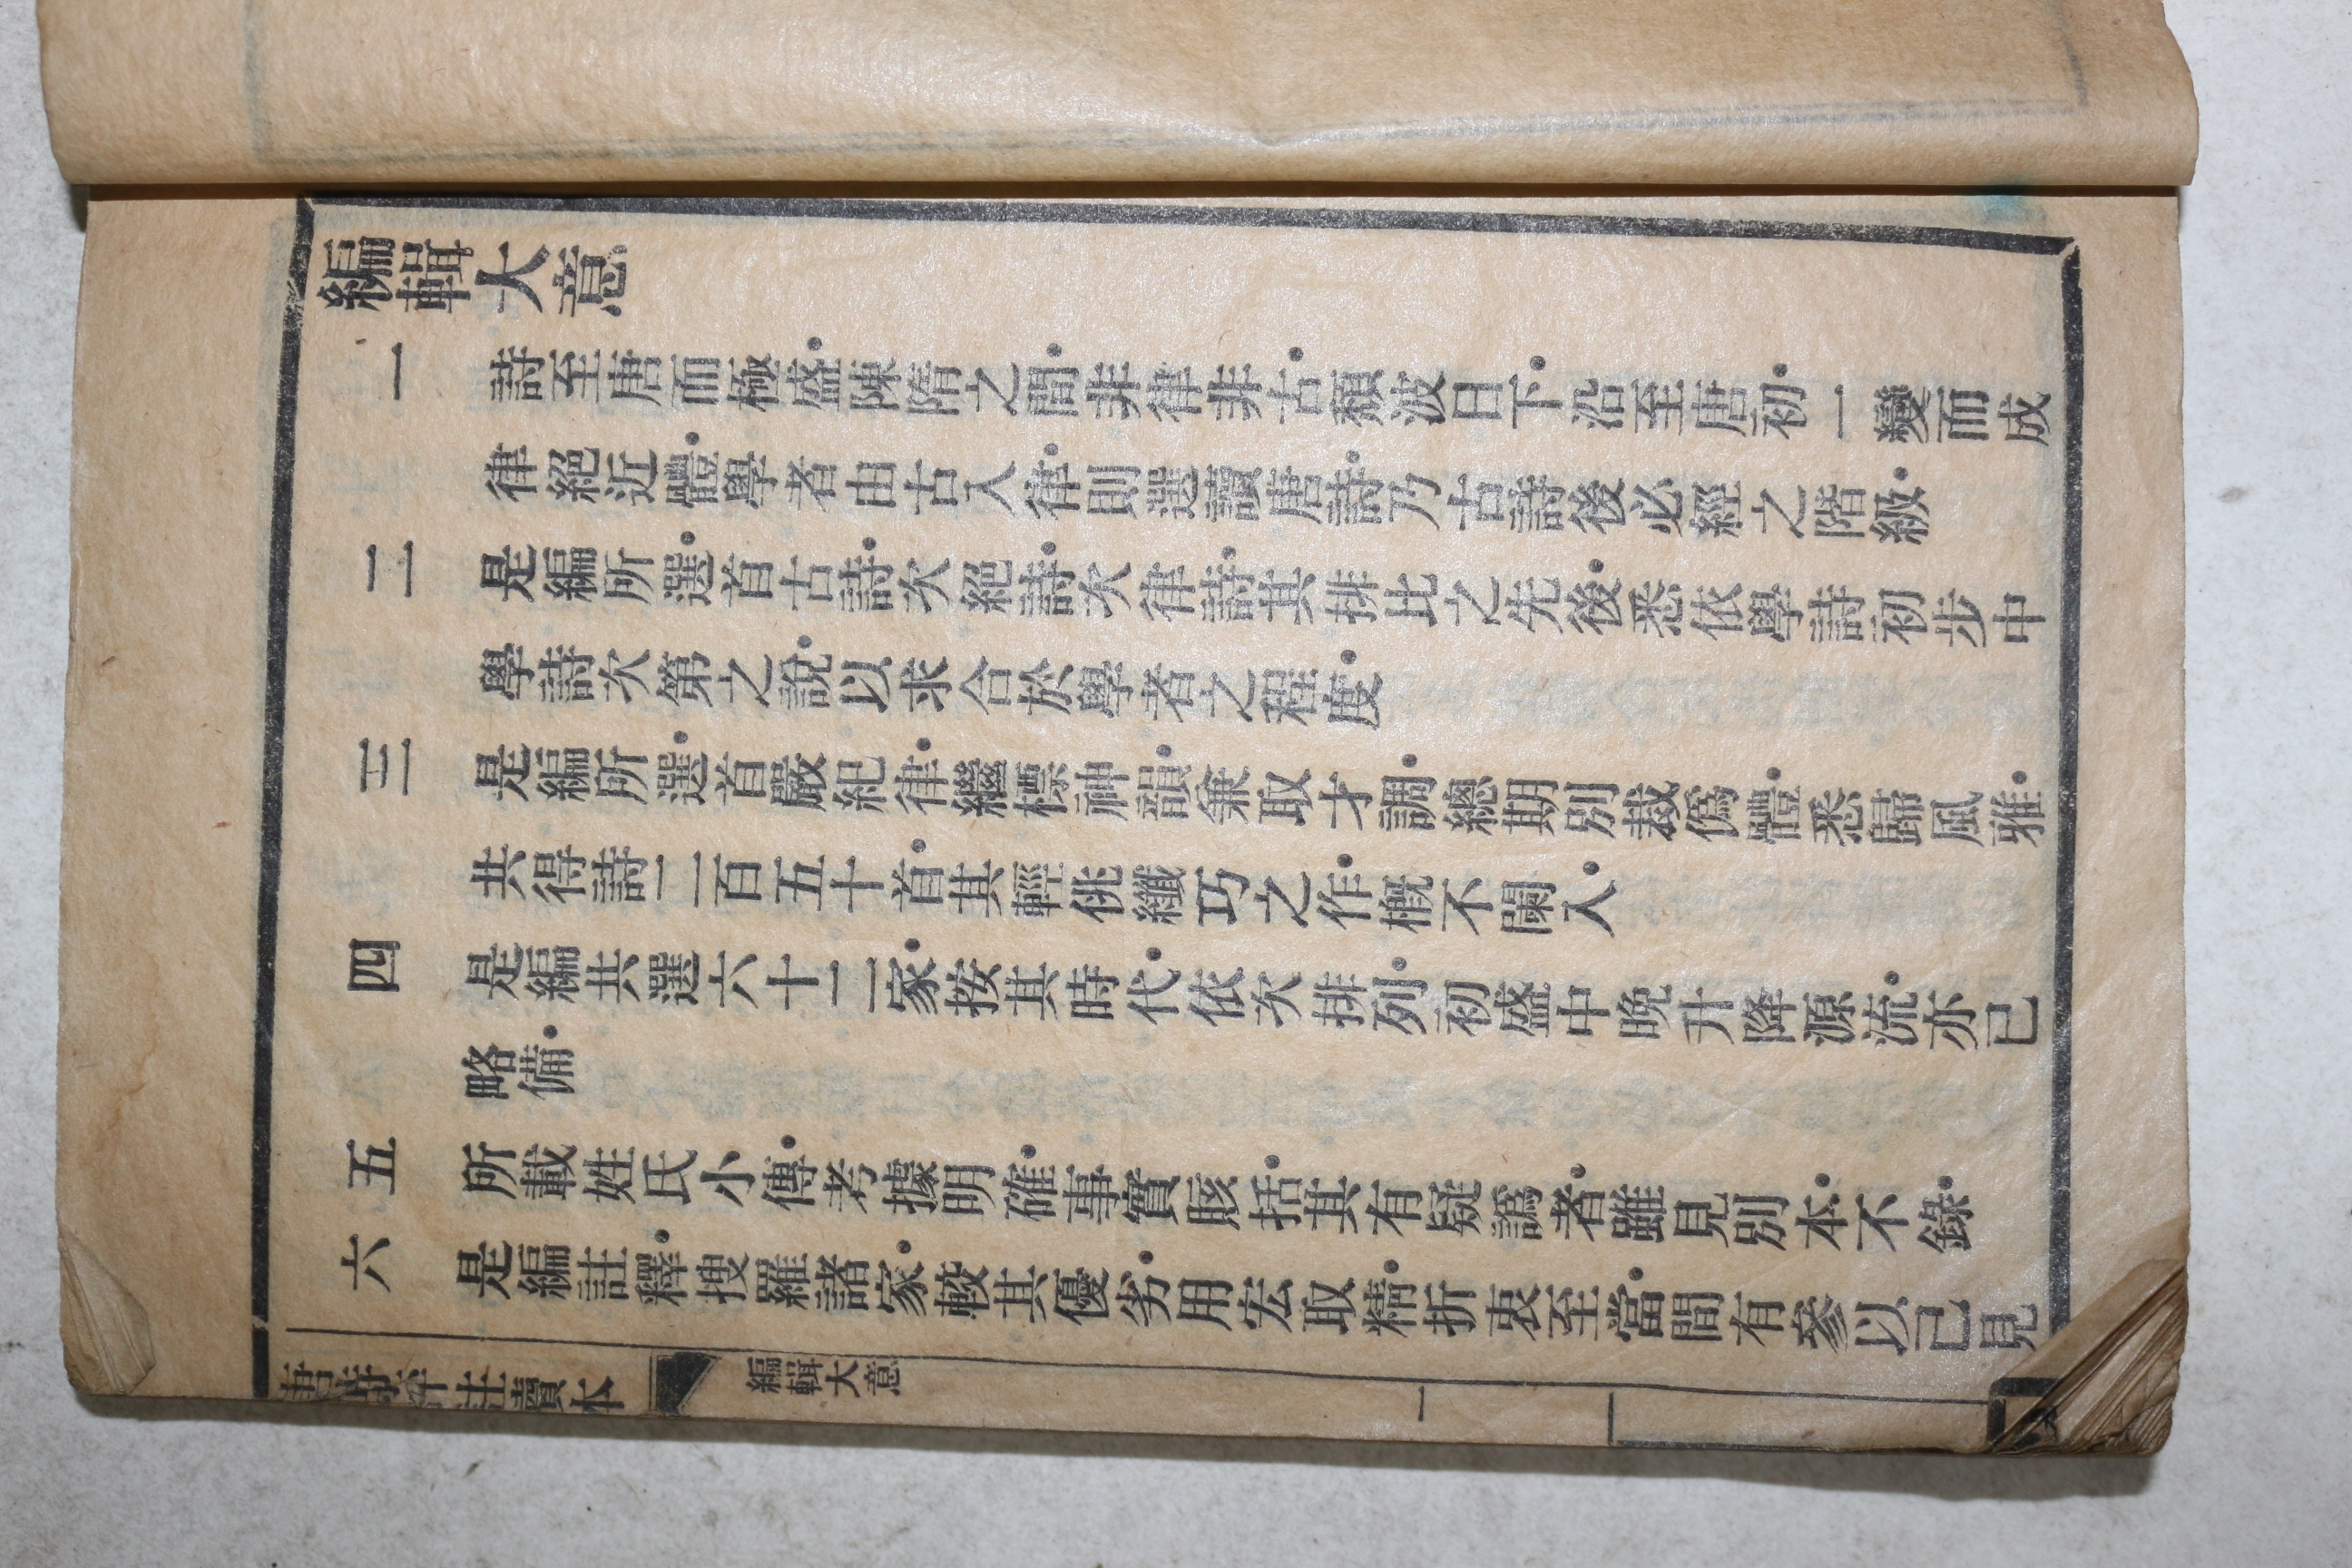 編輯大意
一　詩至唐而極盛。陳隋之間。非律非古。頹波日下。沿至唐初。一變而成
律絕近體。學者由古入律。則選讀唐詩。乃古詩後必經之階級。
二　是編所選。首古詩。次絕詩。次律詩。其排比之先後。悉依學詩初步中
學詩次第之說。以求合於學者之程度。
三　是編所選。首嚴紀律。繼標神韻。兼取才調。總期別裁僞體。悉歸風雅。
共得詩二百五十首。其輕佻纖巧之作。概不闌入。
四　是編共選六十二家。按其時代。依次排列。初盛中晚升降源流。亦已
略備。
五　所載姓氏小傳。考據明確。事實賅括。其有疑譌者。雖見別本。不錄。
六　是編註釋。搜羅諸家。較其優劣。用宏取精。折衷至當。間有參以己見
唐詩評註讀本　編輯大意　一